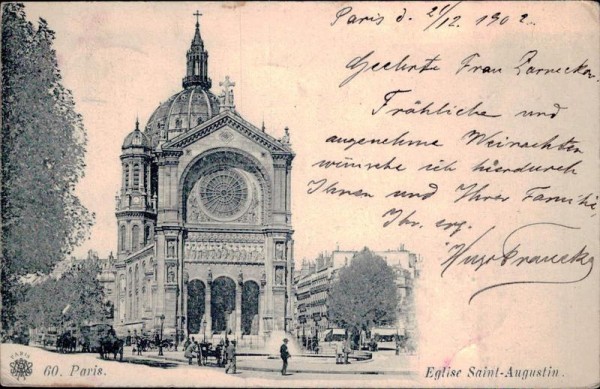 Paris d. 21/12. 1902.
Geehrte Frau
Fröhliche und
angenehme Weinachten
wünsche ich hierdurch
Ihnen und Ihrer Familie,
Ihr erg.
Hugo
PARIS
60. Paris.
Eglise Saint-Augustin.